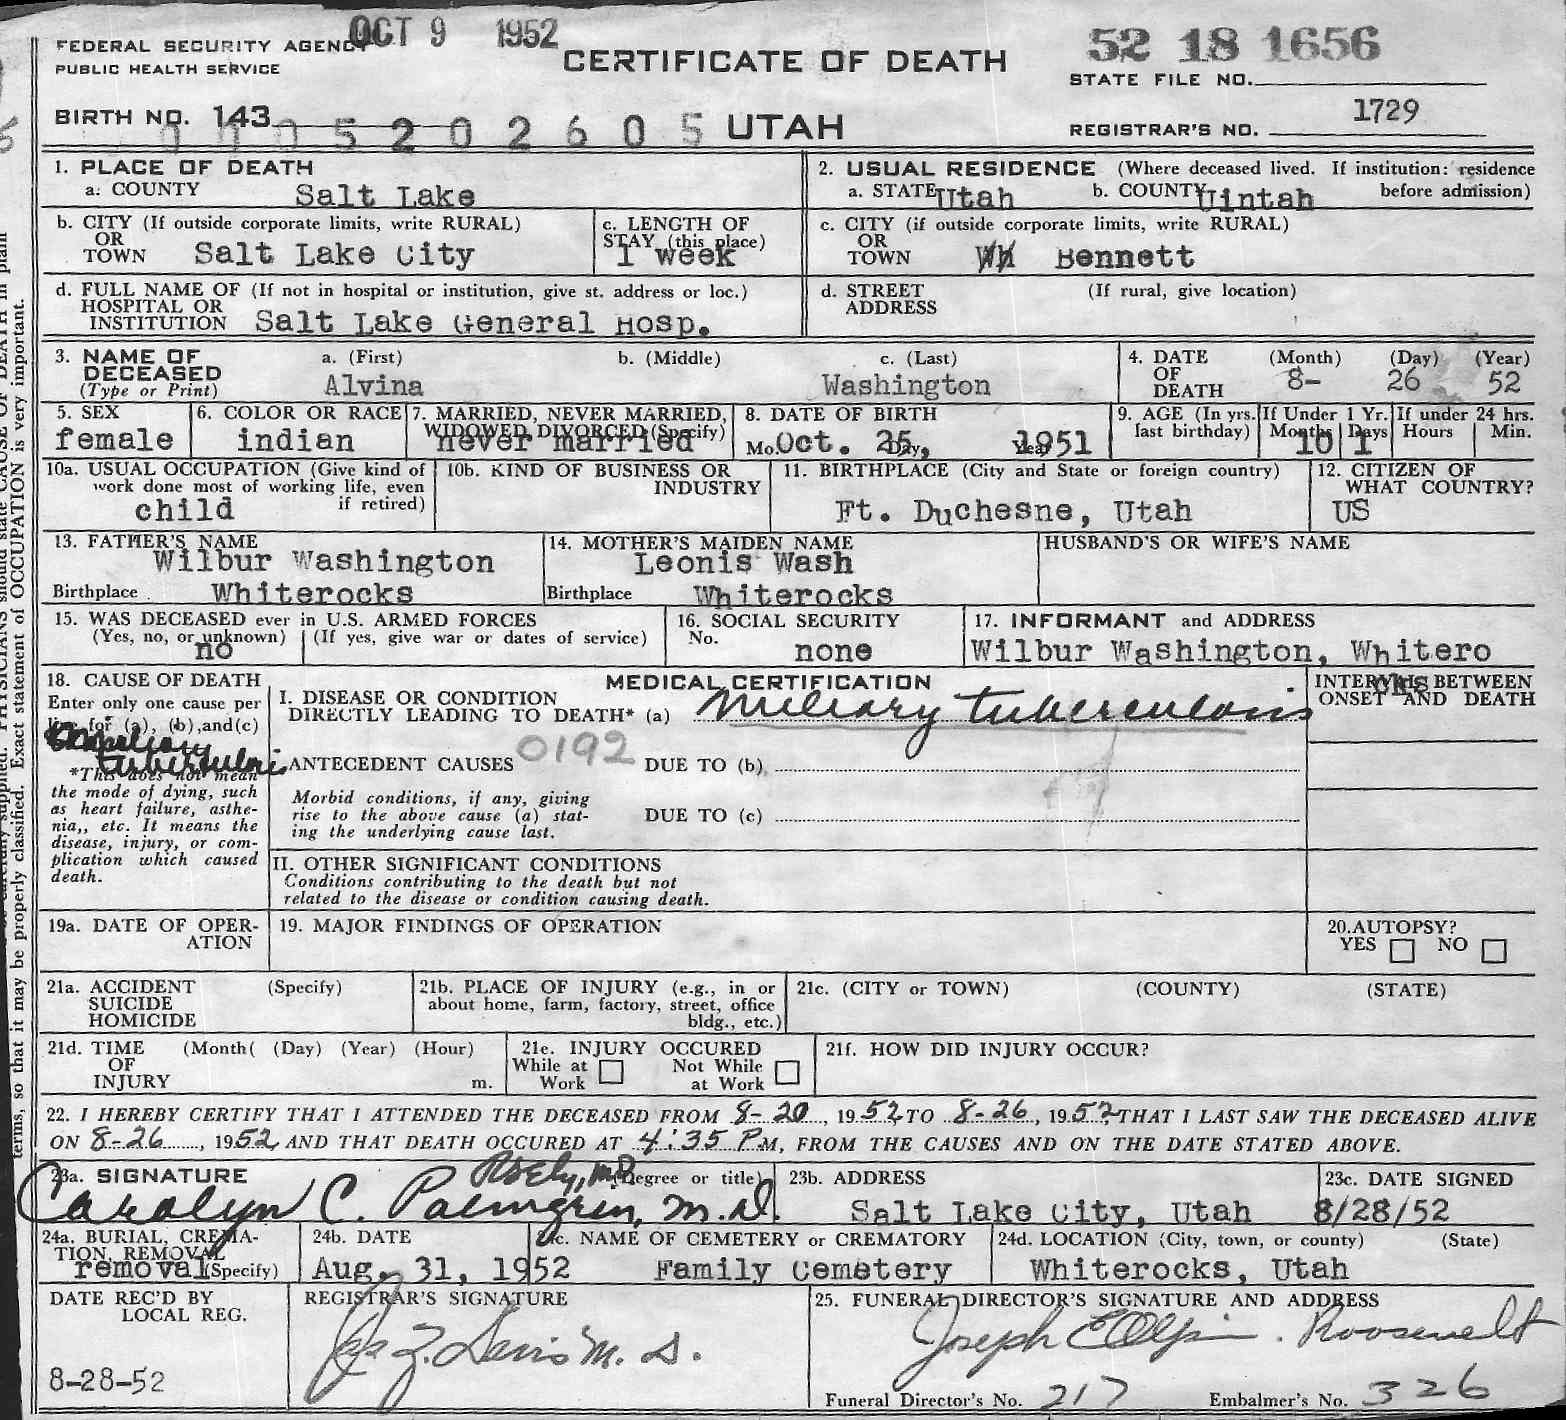 OCT 9 1952
FEDERAL SECURITY AGENCY
PUBLIC HEALTH SERVICE
CERTIFICATE OF DEATH
52 18 1656
STATE FILE NO.
BIRTH NO. 143
0 0 0 5 2 0 2 6 0 5
UTAH
REGISTRAR'S NO. 1729
1. PLACE OF DEATH
a. COUNTY Salt Lake
2. USUAL RESIDENCE (Where deceased lived. If institution: residence before admission)
a. STATE Utah b. COUNTY Uintah
b. CITY (If outside corporate limits, write RURAL)
OR
TOWN Salt Lake City
c. LENGTH OF
STAY (this place)
1 week
c. CITY (if outside corporate limits, write RURAL)
OR
TOWN Bennett
d. FULL NAME OF (If not in hospital or institution, give st. address or loc.)
HOSPITAL OR
INSTITUTION Salt Lake General Hosp.
d. STREET (If rural, give location)
ADDRESS
3. NAME OF
DECEASED
(Type or Print)
a. (First) b. (Middle) c. (Last)
Alvina Washington
4. DATE (Month) (Day) (Year)
OF
DEATH 8- 26 52
5. SEX
female
6. COLOR OR RACE
indian
7. MARRIED, NEVER MARRIED,
WIDOWED DIVORCED (Specify)
never married
8. DATE OF BIRTH
Mo. Oct. Day, 25, Year 1951
9. AGE (In yrs. last birthday)
If Under 1 Yr. If under 24 hrs.
Months 10 Days 1 Hours Min.
10a. USUAL OCCUPATION (Give kind of
work done most of working life, even
if retired)
child
10b. KIND OF BUSINESS OR
INDUSTRY
11. BIRTHPLACE (City and State or foreign country)
Ft. Duchesne, Utah
12. CITIZEN OF
WHAT COUNTRY?
US
13. FATHER'S NAME
Wilbur Washington
Birthplace Whiterocks
14. MOTHER'S MAIDEN NAME
Leonis Wash
Birthplace Whiterocks
HUSBAND'S OR WIFE'S NAME
15. WAS DECEASED ever in U.S. ARMED FORCES
(Yes, no, or unknown) (If yes, give war or dates of service)
no
16. SOCIAL SECURITY
No.
none
17. INFORMANT and ADDRESS
Wilbur Washington, Whitero
cks
18. CAUSE OF DEATH
Enter only one cause per
line for (a), (b), and (c)
Miliary
tuberculosis
*This does not mean
the mode of dying, such
as heart failure, asthe-
nia,, etc. It means the
disease, injury, or com-
plication which caused
death.
MEDICAL CERTIFICATION
I. DISEASE OR CONDITION
DIRECTLY LEADING TO DEATH* (a) Miliary tuberculosis
INTERVALS BETWEEN
ONSET AND DEATH
0192
ANTECEDENT CAUSES DUE TO (b)
Morbid conditions, if any, giving
rise to the above cause (a) stat-
ing the underlying cause last.
DUE TO (c)
II. OTHER SIGNIFICANT CONDITIONS
Conditions contributing to the death but not
related to the disease or condition causing death.
19a. DATE OF OPER-
ATION
19. MAJOR FINDINGS OF OPERATION
20. AUTOPSY?
YES NO
21a. ACCIDENT (Specify)
SUICIDE
HOMICIDE
21b. PLACE OF INJURY (e.g., in or
about home, farm, factory, street, office
bldg., etc.)
21c. (CITY or TOWN) (COUNTY) (STATE)
21d. TIME (Month( (Day) (Year) (Hour)
OF
INJURY m.
21e. INJURY OCCURED
While at Work
Not While at Work
21f. HOW DID INJURY OCCUR?
22. I HEREBY CERTIFY THAT I ATTENDED THE DECEASED FROM 8-20, 1952 TO 8-26, 1952 THAT I LAST SAW THE DECEASED ALIVE
ON 8-26, 1952 AND THAT DEATH OCCURED AT 4:35 P M, FROM THE CAUSES AND ON THE DATE STATED ABOVE.
23a. SIGNATURE (Degree or title)
Carolyn C. Palmgren, M.D.
23b. ADDRESS
Salt Lake City, Utah
23c. DATE SIGNED
8/28/52
24a. BURIAL, CREMA-
TION, REMOVAL
removal (Specify)
24b. DATE
Aug, 31, 1952
24c. NAME OF CEMETERY or CREMATORY
Family Cemetery
24d. LOCATION (City, town, or county) (State)
Whiterocks, Utah
DATE REC'D BY
LOCAL REG.
8-28-52
REGISTRAR'S SIGNATURE
M.D.
25. FUNERAL DIRECTOR'S SIGNATURE AND ADDRESS
Joseph E Olpin. Roosevelt
Funeral Director's No. 217 Embalmer's No. 326
terms, so that it may be properly classified. Exact statement of OCCUPATION is very important.